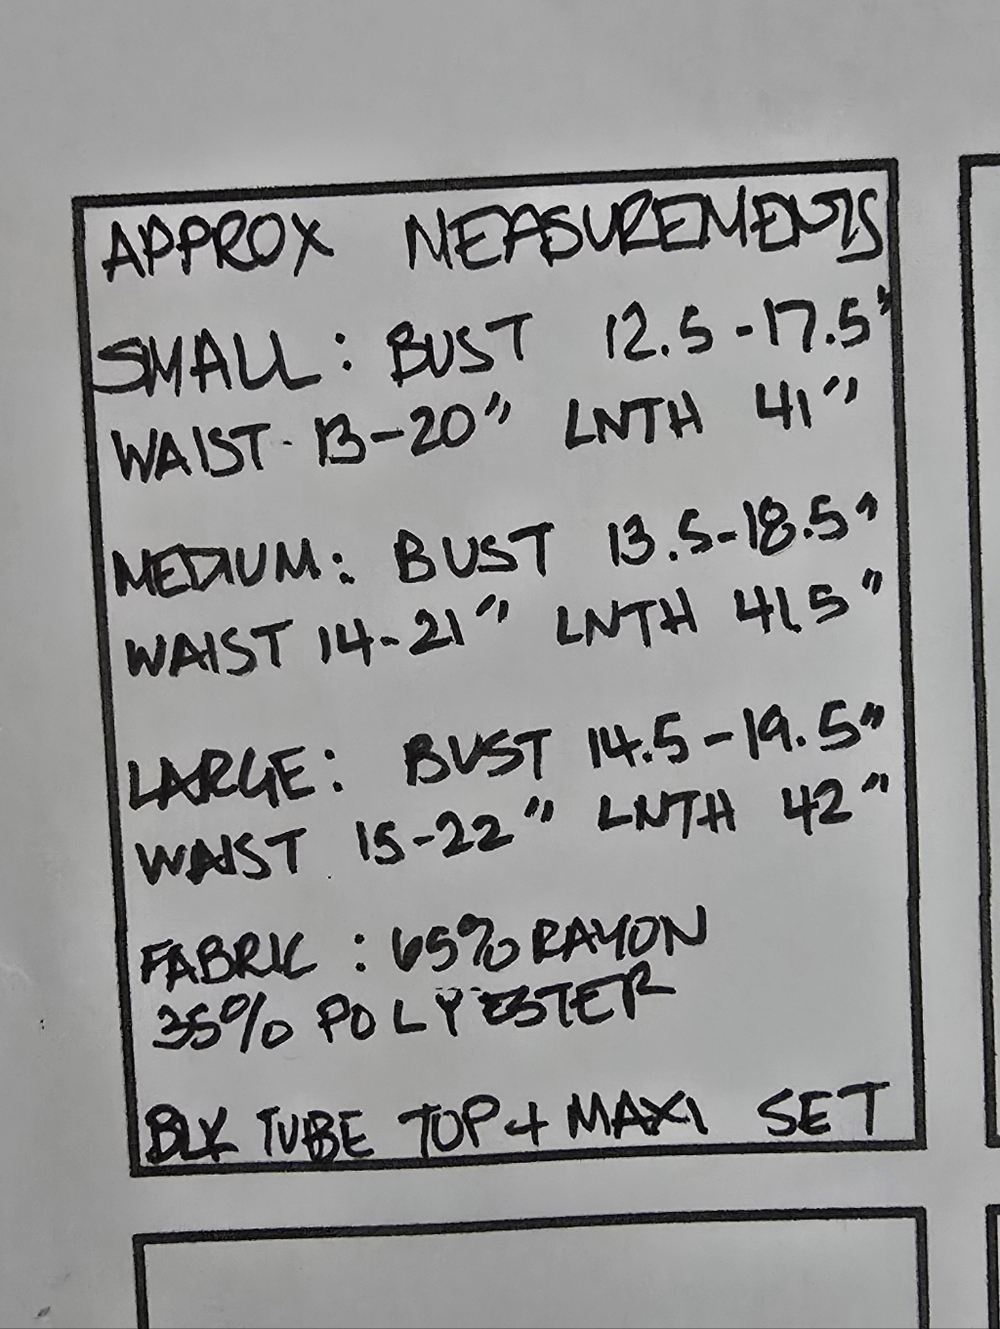 APPROX MEASUREMENTS
SMALL: BUST 12.5-17.5"
WAIST - 13-20" LNTH 41"
MEDIUM: BUST 13.5-18.5"
WAIST 14-21" LNTH 41.5"
LARGE: BUST 14.5-19.5"
WAIST 15-22" LNTH 42"
FABRIC : 65% RAYON
35% POLYESTER
BLK TUBE TOP + MAXI SET